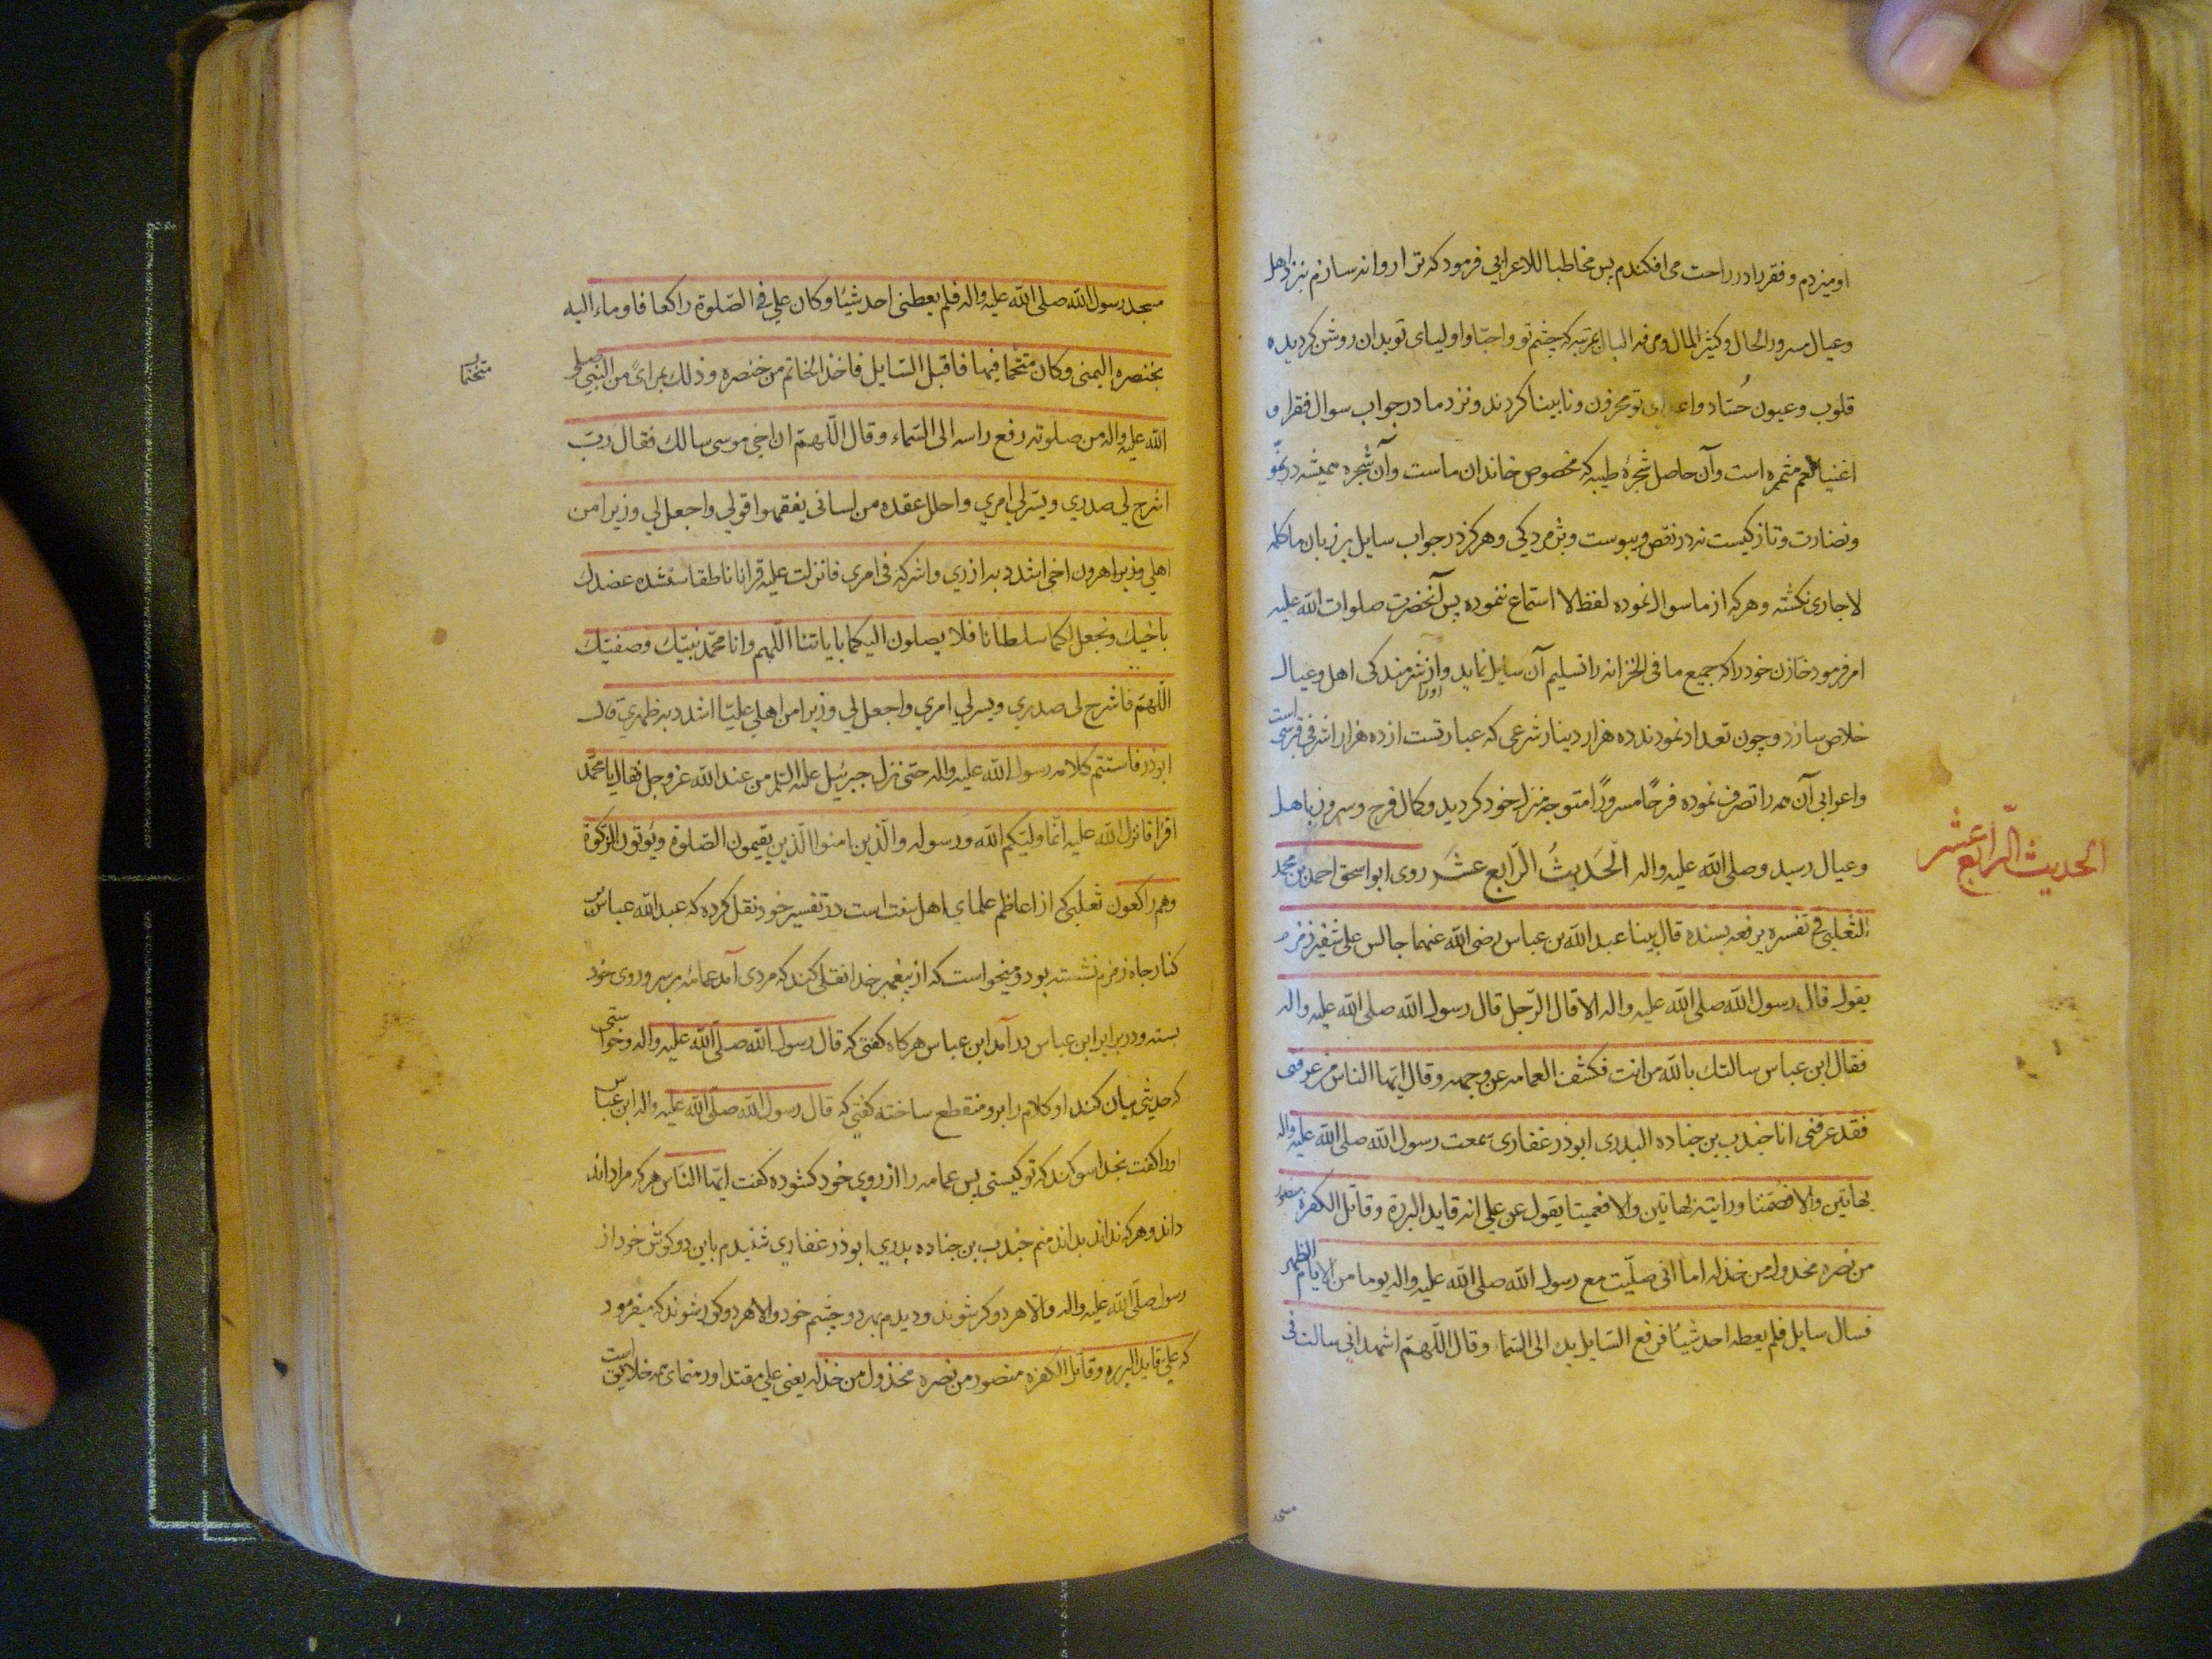 او میزدم و فقر را در راحت می افکندم پس مخاطبا للاعرابی فرمود که ترا روانه سازم بنزد اهل
و عیال مسرور الحال و کثیر المال و مرفه البال بمرتبه که چشم تو و احبّا و اولیای تو بدان روشن کردیده
قلوب و عیون حُسّاد و اعدای تو محزون و نابینا کردند و نزد ما در جواب سوال فقرا و
اغنیا نعم مثمره است و آن حاصل شجرهٔ طیبه که مخصوص خاندان ماست و آن شجره همیشه در نموّ
و نضارت و تازکیست نه در نقص و یبوست و پژمردکی و هرکز در جواب سایل بر زبان ما کلمه
لا جاری نکشته و هرکه از ما سوال نموده لفظ لا استماع ننموده پس آنحضرت صلوات الله علیه
امر فرمود خازن خود را که جمیع ما فی الخزانه را تسلیم آن سایل نماید و او را از شرمندکی اهل و عیال
خلاص سازد و چون تعداد نمودند ده هزار دینار شرعی که عبارتست از ده هزار اشرفی است
و اعرابی آن همه را تصرف نموده فرحًا مسرورًا متوجه منزل خود کردید و کمال فرح و سرور باهل
و عیال رسید و صلی الله علیه واله الحَدیثُ الرّابع عشَر روی ابو اسحق احمد بن محمد
الحدیث الرّابع عشر
الثعلبی فی تفسیره یرفعه بسنده قال بینا عبد الله بن عباس رضی الله عنهما جالس علی شفیر زمزم
یقول قال رسول الله صلی الله علیه واله الا قال الرّجل قال رسول الله صلی الله علیه واله
فقال ابن عباس سالتك بالله من انت فکشف العمامه عن وجهه وقال ایّها الناس من عرفنی
فقد عرفنی انا جندب بن جناده البدری ابوذر غفاری سمعت رسول الله صلی الله علیه واله
بهاتین والا فصُمّتا ورایته بهاتین والا فعمیتا یقول عن علی انه قاید البررة وقاتل الکفرة منصور
من نصره مخذول من خذله اما انی صلّیت مع رسول الله صلی الله علیه واله یوما من الایام الظهر
فسال سایل فلم یعطه احد شیئًا فرفع السّایل یده الی السّما وقال اللّهمّ اشهد انی سالت فی
مسجد
مسجد رسول الله صلی الله علیه واله فلم یعطنی احد شیئًا وکان علی فی الصّلوة راکعا فاوماء الیه
بخنصره الیمنی وکان متختّما فیها فاقبل السّایل فاخذ الخاتم من خنصره وذلك بمراىً من النبی صلی
متختما
الله علیه واله من صلوته رفع راسه الی السّماء وقال اللّهمّ ان اخی موسی سالك فقال ربّ
اشرح لی صدري ویسّر لي امري واحلل عقده من لسانی یفقهوا قولي واجعل لي وزیرا من
اهلي وزیرا هرون اخی اشدد به ازري واشرکه فی امری فانزلت علیه قرانا ناطقا سنشده عضدك
باخیك ونجعل لکما سلطانا فلا یصلون الیکما بایاتنا اللّهم وانا محمّد نبیّك وصفیّك
اللّهمّ فاشرح لی صدري ویسر لي امري واجعل لي وزیرا من اهلي علیّا اشدد به ظهري قال
ابوذر فاستتم کلامه رسول الله علیه واله حتی نزل جبرئیل علیه السّلم من عند الله عز وجل فقال یا محمّد
اقرا فانزل الله علیه انّما ولیّکم الله ورسوله والّذین امنوا الّذین یقیمون الصّلوة ویُوتون الزّکوة
وهم راکعون ثعلبی که از اعاظم علمای اهل سنت است در تفسیر خود نقل کرده که عبد الله عباس
کنار چاه زمزم نشسته بود و میخواست که از پیغمبر خدا نقلی کند که مردی آمد عمامه بر سر و روی خود
بسته و در برابر ابن عباس در آمد ابن عباس هرکاه کفتی که قال رسول الله صلّی الله علیه واله وخواستی
که حدیثی بیان کند او کلام را برو منقطع ساخته کفتی که قال رسول الله صلّی الله علیه واله ابن عباس
او را کفت بخدا سوکند که تو کیستی پس عمامه را از روی خود کشوده کفت ایّها النّاس هرکه مرا داند
داند و هرکه نداند بداند منم جندب بن جناده بدری ابوذر غفاري شنیدم باین دو کوش خود از
رسول صلّی الله علیه واله والا هر دو کر شوند و دیدم بهر دو چشم خود والا هر دو کور شوند که میفرمود
که علی قاید البرره وقاتل الکفره منصور من نصره مخذول من خذله یعنی علی مقتدا و رهنمای همه خلایق است